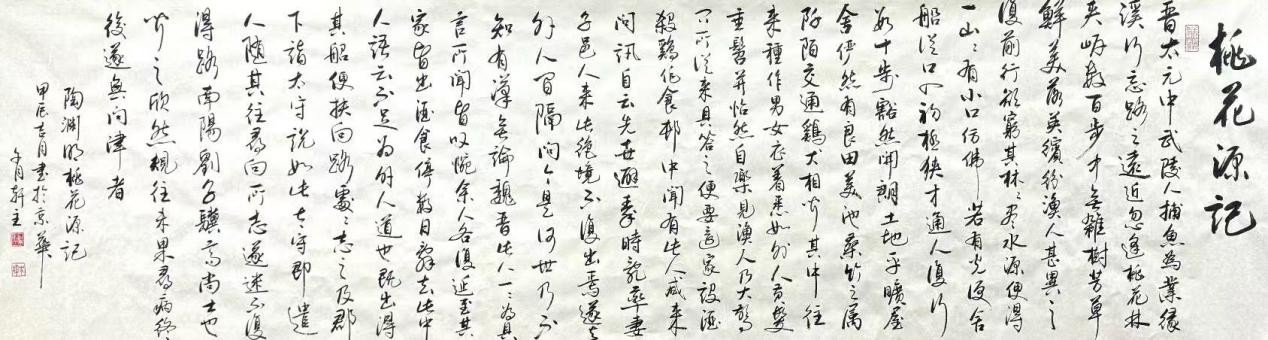 桃花源记
晋太元中武陵人捕鱼为業缘
溪行忘路之遠近忽逢桃花林
夹岸数百步中無雜樹芳草
鮮美落英繽纷漁人甚異之
復前行欲窮其林林尽水源便得
一山山有小口仿佛若有光便舍
船従口入初極狭才通人復行
数十步豁然開朗土地平曠屋
舍俨然有良田美池桑竹之属
阡陌交通鷄犬相闻其中往
来種作男女衣着悉如外人黄髮
垂髫并怡然自樂見漁人乃大驚
问所従来具答之便要還家設酒
殺鷄作食邨中闻有此人咸来
问訊自云先世避秦時亂率妻
子邑人来此绝境不復出焉遂与
外人间隔问今是何世乃不
知有漢無論魏晋此人一一為具
言所闻皆叹惋余人各復延至其
家皆出酒食停数日辞去此中
人語云不足为外人道也既出得
其船便扶向路處處志之及郡
下詣太守説如此太守即遣
人随其往尋向所志遂迷不復
得路南陽劉子驥高尚士也
闻之欣然規往未果尋病终
後遂無问津者
陶淵明桃花源记
甲辰吉月书於京華
轩主